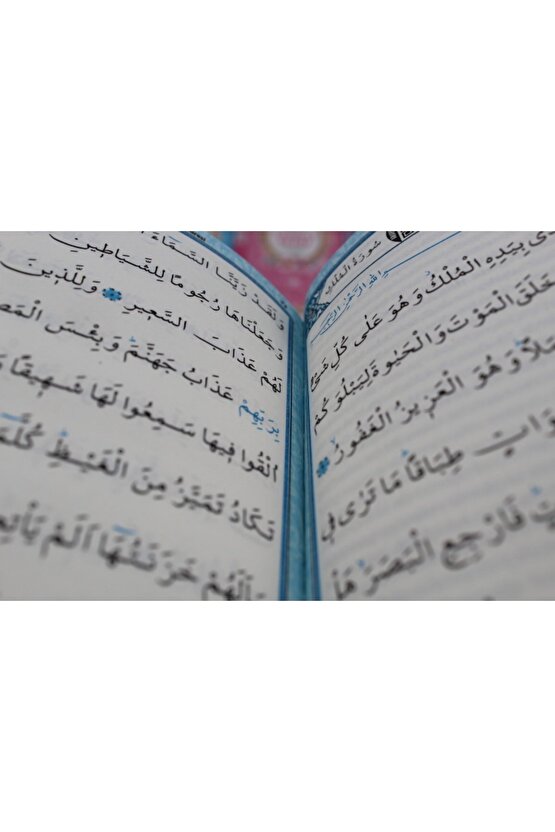 سُورَةُ الْمُلْكِ
بِيَدِهِ الْمُلْكُ وَهُوَ عَلٰى كُلِّ شَىْءٍ
خَلَقَ الْمَوْتَ وَالْحَيٰوةَ لِيَبْلُوَكُمْ
وَهُوَ الْعَزِيزُ الْغَفُورُ
طِبَاقًا مَا تَرٰى فِى
فَارْجِعِ الْبَصَرَ هَلْ
وَلَقَدْ زَيَّنَّا السَّمَاءَ
وَجَعَلْنَاهَا رُجُومًا لِلشَّيَاطِينِ
لَهُمْ عَذَابَ السَّعِيرِ وَلِلَّذِينَ
بِرَبِّهِمْ عَذَابُ جَهَنَّمَ وَبِئْسَ
اُلْقُوا فِيهَا سَمِعُوا لَهَا شَهِيقًا
تَكَادُ تَمَيَّزُ مِنَ الْغَيْظِ كُلَّمَا
سَاَلَهُمْ خَزَنَتُهَا اَلَمْ